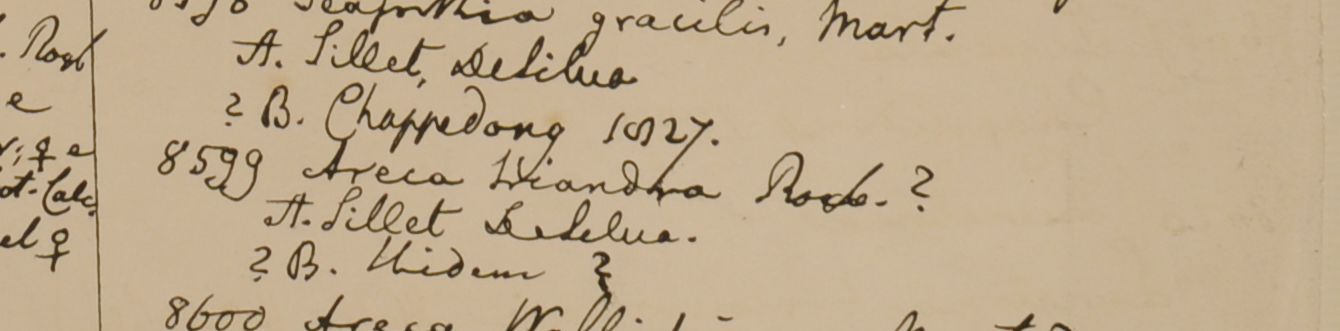 . Roxb
e
r; ♀ e
ot. Calc.
el ♀
8598 Seaforthia gracilis, Mart.
A. Sillet, DeSilva
? B. Chappedong 1827.
8599 Areca triandra Roxb. ?
A. Sillet DeSilva.
? B. Ibidem ?
8600 Areca